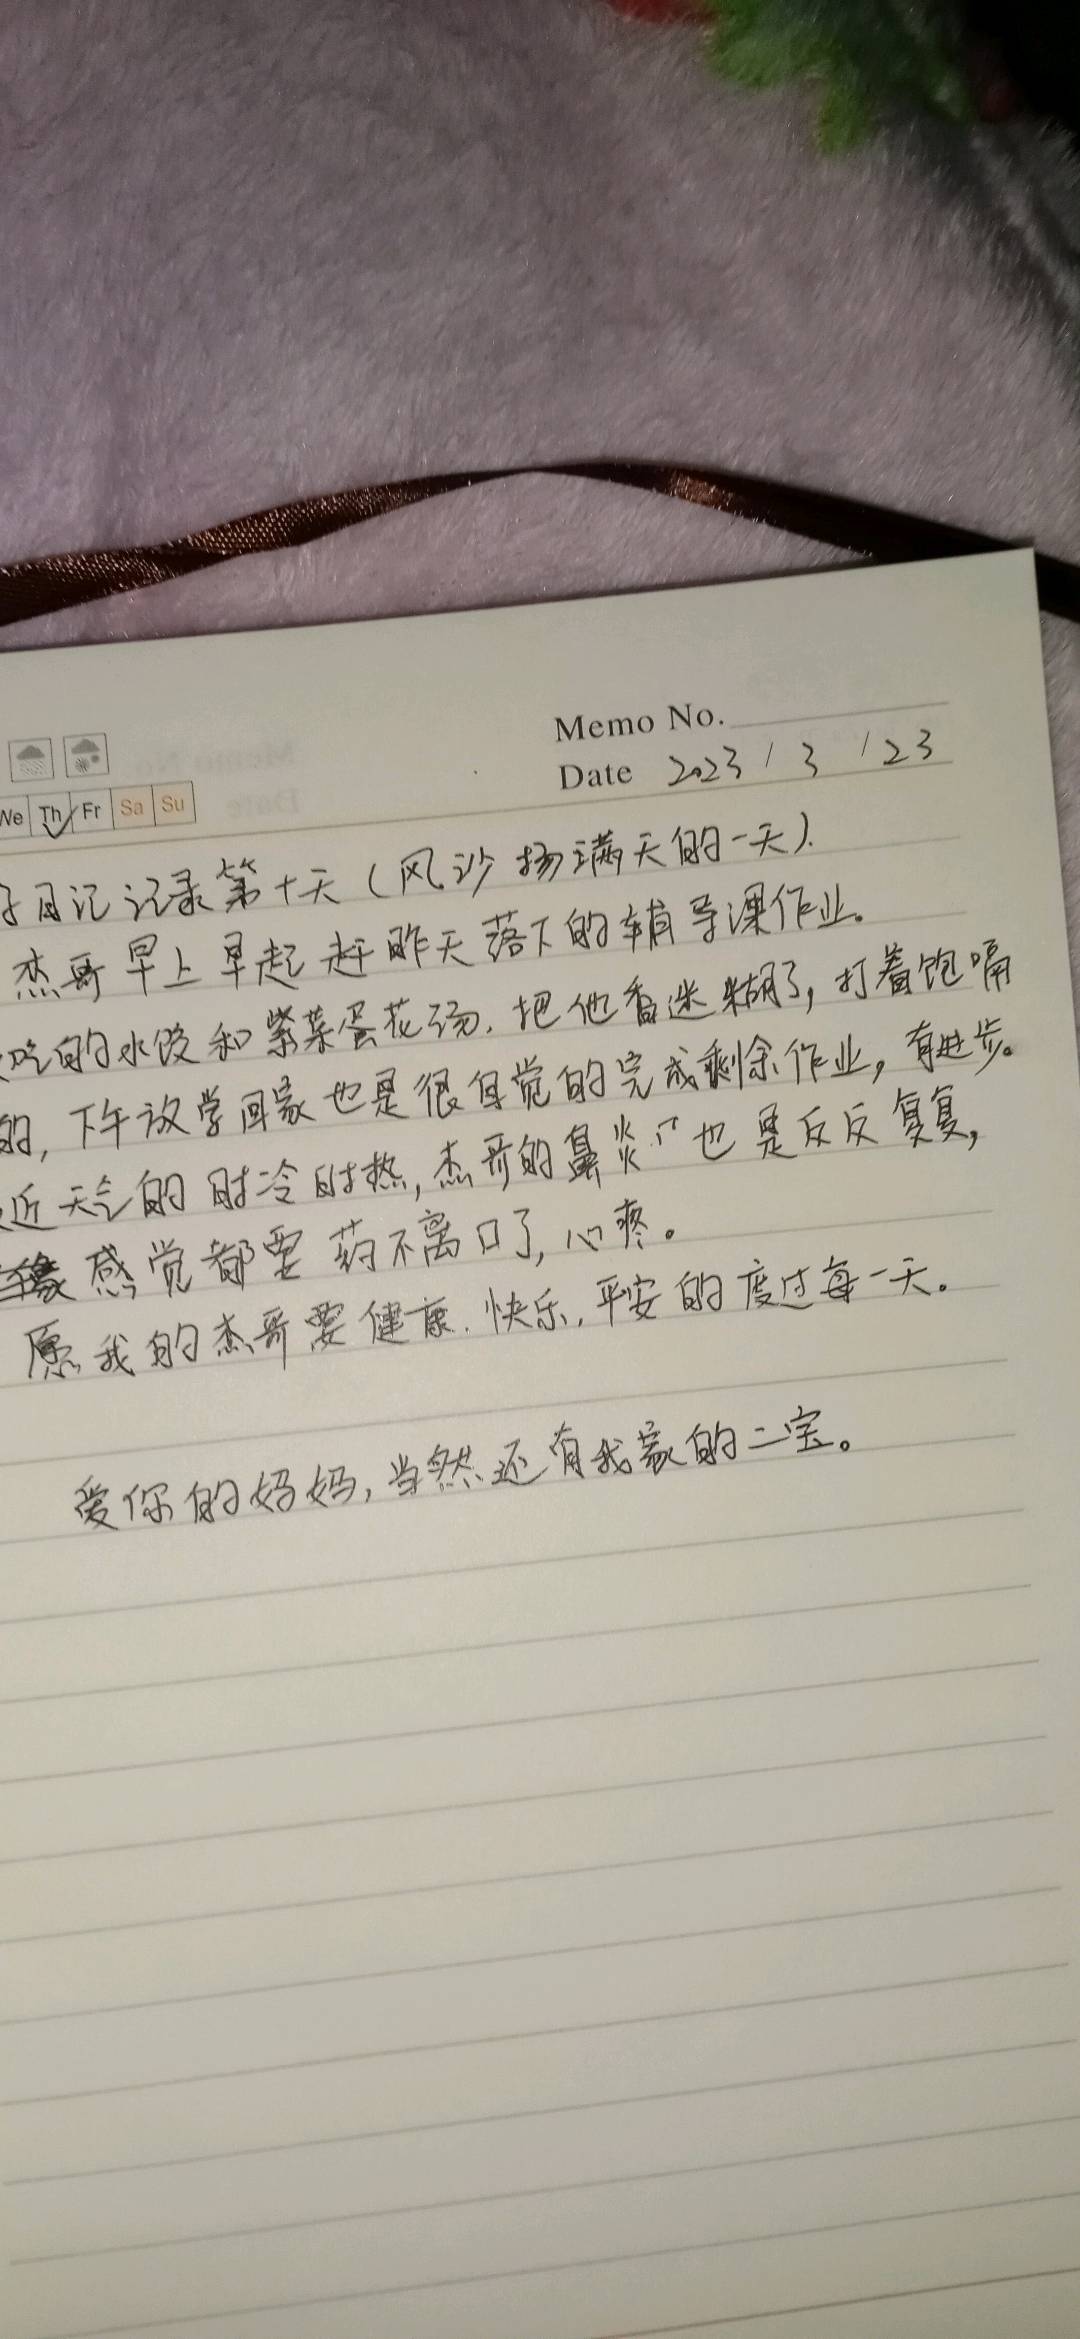 Memo No.
Date 2023 / 3 / 23
We Th Fr Sa Su
日记记录第十天(风沙扬满天的一天).
杰哥早上早起赶昨天落下的辅导课作业。
吃的水饺和紫菜蛋花汤,把他香迷糊了,打着饱嗝
的,下午放学回家也是很自觉的完成剩余作业,有进步。
近天气的时冷时热,杰哥的鼻炎也是反反复复,
感觉都要药不离口了,心疼。
愿我的杰哥要健康.快乐,平安的度过每一天。
爱你的妈妈,当然还有我家的二宝。